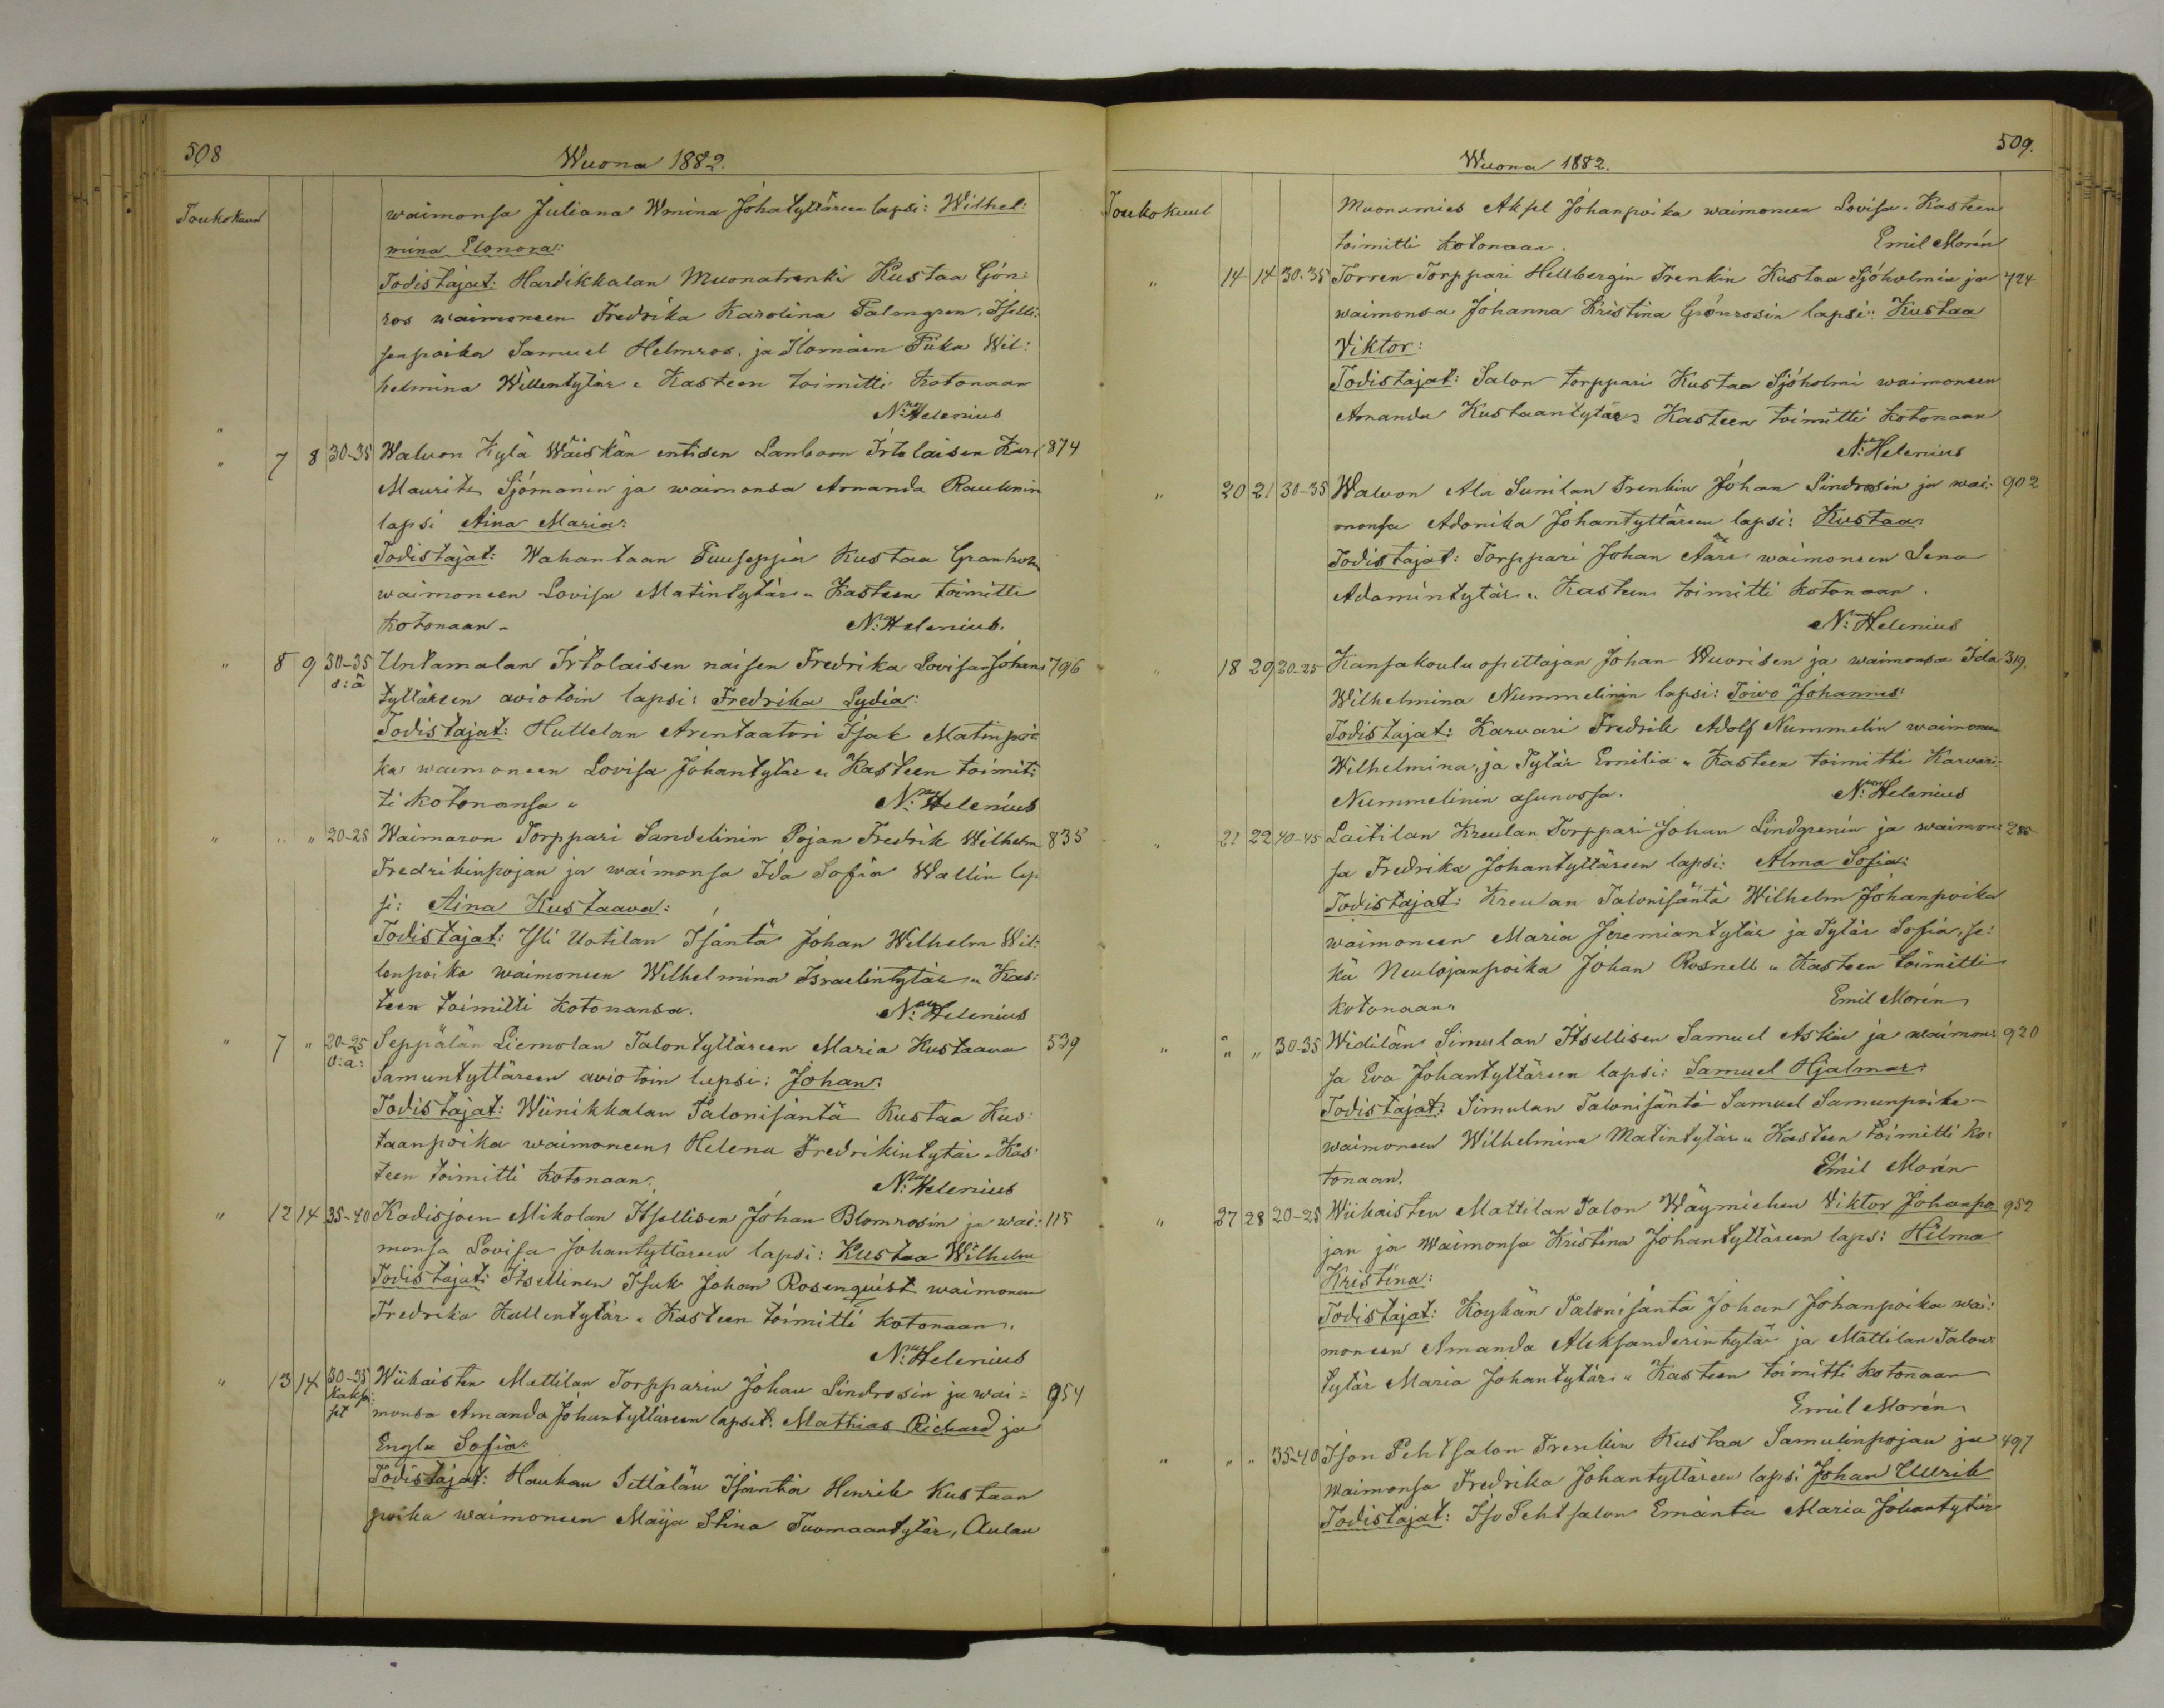 508
Wuona 1882.
Toukokuul
waimonsa Juliana Wmina Johatyttären lapsi: Wilhel:
mina Elonora:
Todistajat: Hardikkalan Muonatrenki Kustaa Gön:
ros waimoneen Fredrika Karolina Palmgren, Itselli:
senpoika Samuel Helmros. ja Ilomäen Piika Wil:
helmina Willentytär „ Kasteen toimitti kotonaan
N: Helenius
„
„ 7 8 30-35 Walwon Kylä Wäiskän entisen Lamboon Irtolaisen Karl 874
Maurits Sjömanin ja waimonsa Amanda Raulinin
lapsi Aina Maria:
Todistajat: Wahantaan Puuseppä Kustaa Granholm
waimoneen Lovisa Matintytär „ Kasteen toimitti
kotonaan „ N: Helenius.
„ 8 9 30-35 Untamalan Irtolaisen naisen Fredrika Lovisan Johans 796
s: ä tyttären aviotoin lapsi: Fredrika Lydia:
Todistajat: Huttelan Arentaatori Isak Matinpoi:
ka waimoneen Lovisa Johantytär „ Kasteen toimit:
ti kotonansa „ N: Helenius
„ „ „ 20-25 Waimaron Torppari Sandelinin Pojan Fredrik Wilhelm 835
Fredrikinpojan ja waimonsa Ida Sofia Wallin lap
si: Aina Kustaava:
Todistajat: Yli Uotilan Isäntä Johan Wilhelm Wil:
lenpoika waimoneen Wilhelmina Israelintytär „ Kas:
teen toimitti kotonansa. N: Helenius
„ 7 „ 20-25 Seppälän Liemolan Talontyttären Maria Kustaava 539
s: ä: Samuntyttären aviotoin lapsi: Johan:
Todistajat: Wiinikkalan Talonisäntä Kustaa Kus:
taanpoika waimoneens Helena Fredrikintytär „ Kas:
teen toimitti kotonaan. N: Helenius
„ 12 14 35-40 Kodisjoen Mikolan Itsellisen Johan Blomrosin ja wai: 115
monsa Lovisa Johantyttären lapsi: Kustaa Wilhelm
Todistajat: Itsellinen Isak Johan Rosenquist waimoneen
Fredrika Kallentytär „ Kasteen toimitti kotonaan.
N: Helenius
„ 13 14 30-35 Wiikaisten Mattilan Torpparin Johan Lindrosin ja wai: 954
kakso:
set monsa Amanda Johantyttären lapset: Mathias Richard ja
Engla Sofia:
Todistajat: Haukan Isäntä Henrik Kustaan
poika waimoneen Maija Stina Tuomaantytär, Aulan
509.
Wuona 1882.
Toukokuul
Muonamies Aksel Johanpoika waimoneen Lovisa. Kasteen
toimitti kotonaan. Emil Morén
„ 14 14 30-35 Torren Torppari Hellbergin Trenkin Kustaa Sjöholmin ja 724
waimonsa Johanna Kristina Grönrosin lapsi: Kustaa
Viktor:
Todistajat: Salon torppari Kustaa Sjöholmi waimoneen
Amanda Kustaantytär, Kasteen toimitti kotonaan
N: Helenius
„ 20 21 30-35 Walwon Ala Sunilan Trenkin Johan Lindrosin ja wai: 902
monsa Adonika Johantyttären lapsi: Kustaa:
Todistajat: Torppari Johan Aare waimoneen Lena
Adamintytär „ Kasteen toimitti kotonaan.
N: Helenius
„ 18 29 20-25 Kansakoulu opettajan Johan Wuorisen ja waimonsa Ida 319.
Wilhelmina Nummelinin lapsi: Toivo Johannes:
Todistajat: Karwari Fredrik Adolf Nummelin waimoneen
Wilhelmina, ja Tytär Emilia „ Kasteen toimitti Karwari
Nummelinin asunossa. N: Helenius
„ 21 22 40-45 Laitilan Kreulan Torppari Johan Lindgrenin ja waimon:
sa Fredrika Johantyttären lapsi: Alma Sofia:
Todistajat: Kreulan Talonisäntä Wilhelm Johanpoika
waimoneen Maria Jeremiantytär ja Tytär Sofia, se:
kä Neulojanpoika Johan Rosnell „ Kasteen toimitti
kotonaan. Emil Morén
„ „ „ 30-35 Widilän Simulan Itsellisen Samuel Askin ja waimon: 920
sa Eva Johantyttären lapsi: Samuel Hjalmar:
Todistajat: Simulan Talonisäntä Samuel Samunpoika
waimoneen Wilhelmina Matintytär „ Kasteen toimitti ko:
tonaan. Emil Morén
„ 27 28 20-25 Wiikaisten Mattilan Talon Wäymiehen Viktor Johanpo 952
jan ja Waimonsa Kristina Johantyttären lapsi: Hilma
Kristina:
Todistajat: Koykän Talonisäntä Johan Johanpoika wai:
moneen Amanda Aleksanderintytär ja Mattilan Talon:
tytär Maria Johantytär „ Kasteen toimitti kotonaan
Emil Morén
„ „ „ 35-40 Ison Pehtsalon Trenkin Kustaa Samulinpojan ja 497
Waimonsa Fredrika Johantyttären lapsi Johan Ulrik
Todistajat: Iso Pehtsalon Emäntä Maria Johantytär